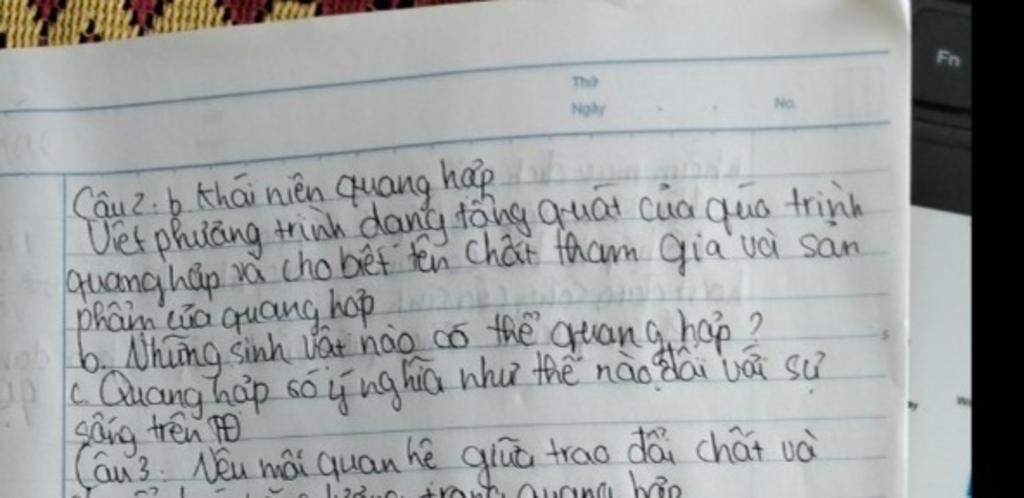 Fn
Thứ
Ngày . . No.
Câu 2: b Khái niên quang hợp
Viết phương trình dạng tổng quát của quá trình
quang hợp và cho biết tên chất tham gia và sản
phẩm của quang hợp
b. Những sinh vật nào có thể quang hợp?
c. Quang hợp số ý nghĩa như thế nào đối với sự
sống trên TĐ
Câu 3: Nêu mối quan hệ giữa trao đổi chất và
trong quang hợp